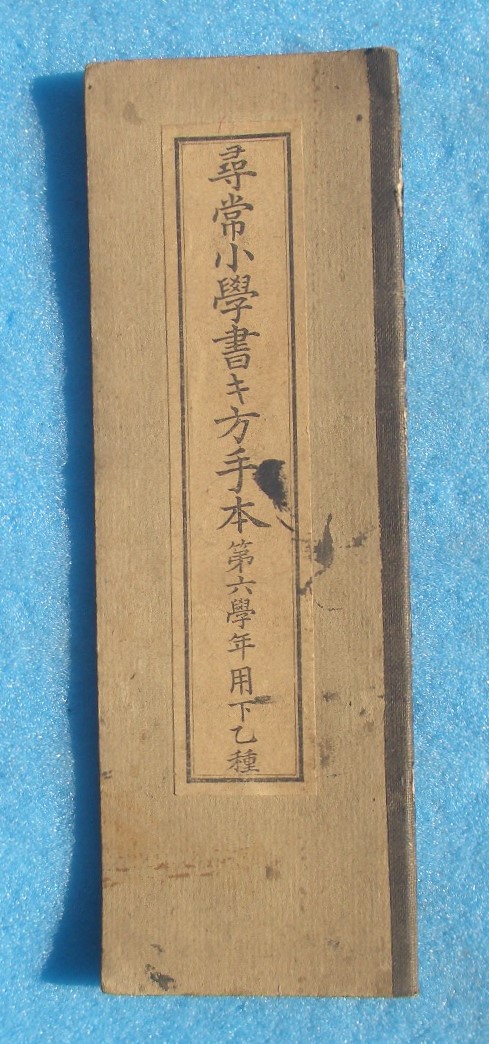 尋常小學書キ方手本第六學年用下乙種